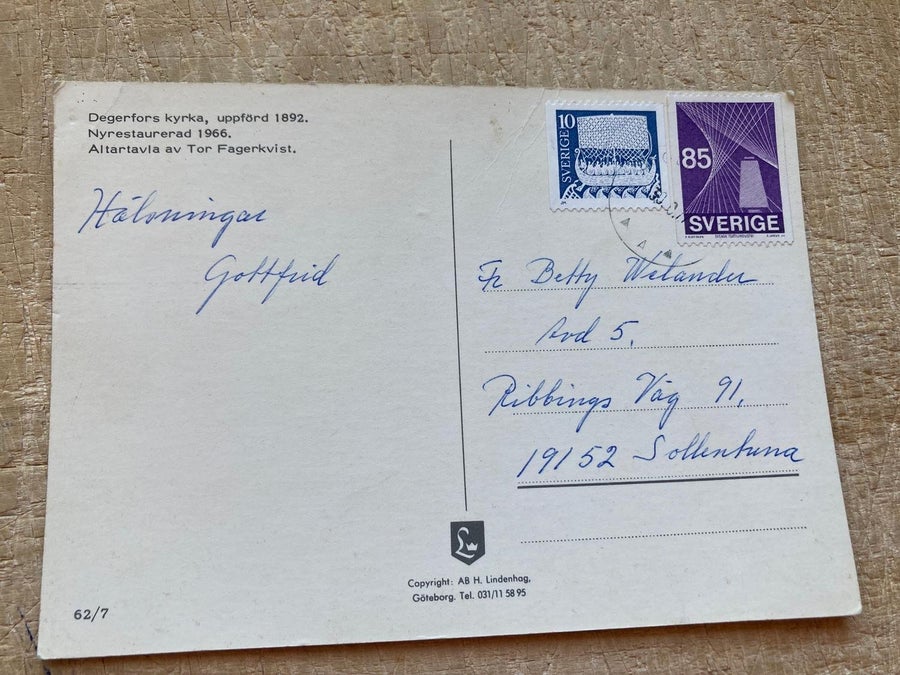 Degerfors kyrka, uppförd 1892.
Nyrestaurerad 1966.
Altartavla av Tor Fagerkvist.
Hälsningar
Gottfrid
SVERIGE 10
85
SVERIGE
Fr Betty Welander
Avd 5.
Ribbings Väg 91.
19152 Sollentuna
Copyright: AB H. Lindenhag,
Göteborg. Tel. 031/11 58 95
62/7